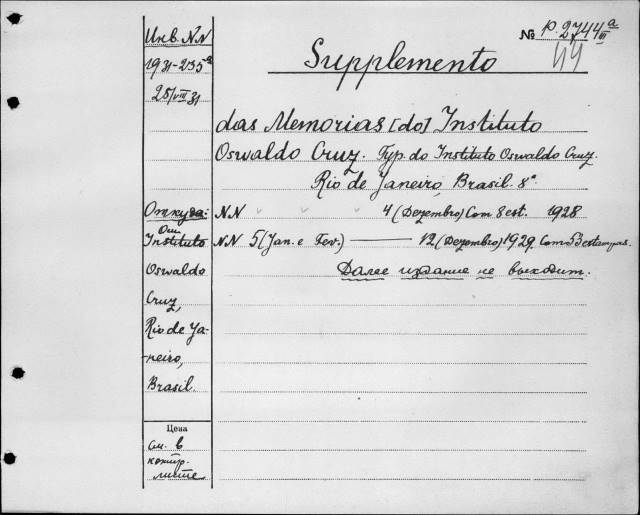 Инв. NN
1931-235ª
28/VIII 31
№ p. 2744ª
III
44
Supplemento
das Memorias [do] Instituto
Oswaldo Cruz. Typ. do Instituto Oswaldo Cruz.
Rio de Janeiro, Brasil. 8º
Откуда:
От
Instituto
Oswaldo
Cruz,
Rio de Ja-
-neiro,
Brasil.
NN 4 (Dezembro) Com 8 est. 1928
NN 5 (Jan. e Fev.) — 12 (Dezembro) 1929. Com 53 estampas.
Далее издание не выходит.
Цена
см. в
контр.
листе